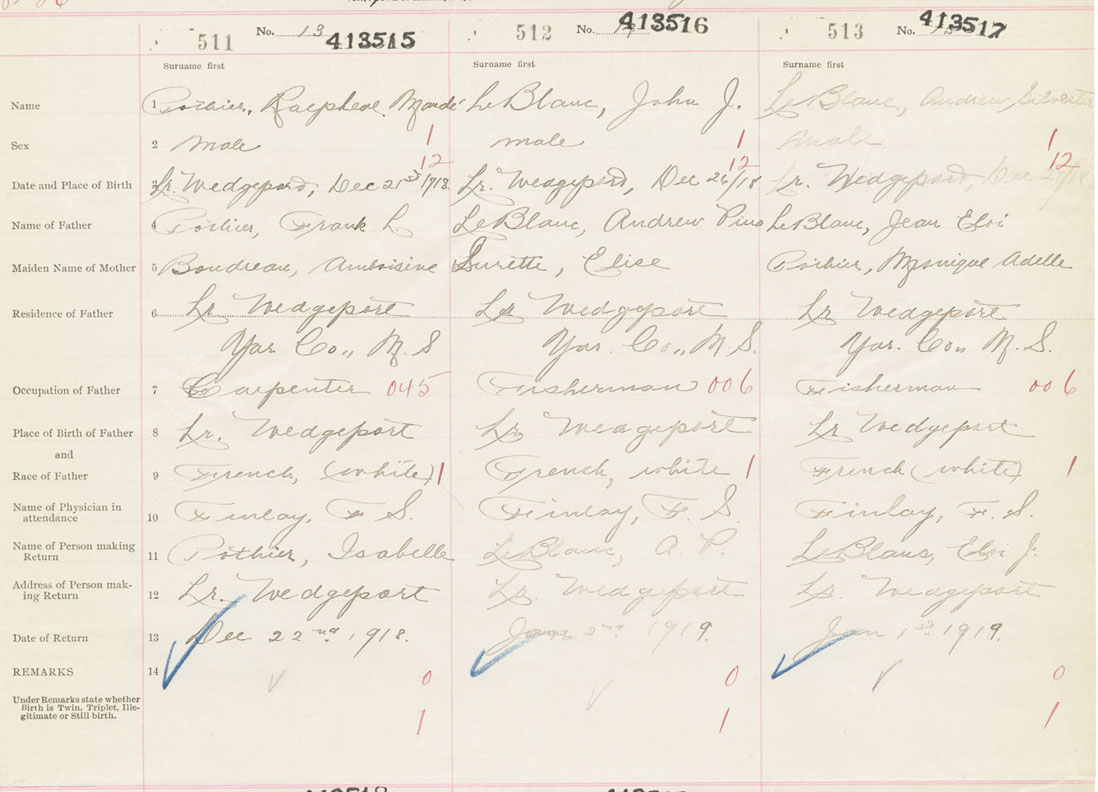 511 No. 13 413515 512 No. 413516 513 No. 413517
Surname first Surname first Surname first
Name 1 Pothier, Raepheal Mande LeBlanc, John J. LeBlanc, Andrew Silvester
Sex 2 male 1 male 1 male 1
12 12 12
Date and Place of Birth 3 Lr. Wedgeport, Dec 21st 1918 Lr. Wedgeport, Dec 26/18 Lr. Wedgeport, Dec
Name of Father 4 Pothier, Frank L. LeBlanc, Andrew Pius LeBlanc, Jean Eloi
Maiden Name of Mother 5 Boudreau, Ambroisine Surette, Elise Pothier, Monique Adelle
Residence of Father 6 Lr Wedgeport Lr Wedgeport Lr Wedgeport
Yar. Co., N. S Yar. Co., N. S. Yar. Co., N. S.
Occupation of Father 7 Carpenter 045 Fisherman 006 Fisherman 006
Place of Birth of Father 8 Lr. Wedgeport Lr Wedgeport Lr Wedgeport
and
Race of Father 9 French, (white) 1 French, white 1 French (white) 1
Name of Physician in
attendance 10 Finlay, F S. Finlay, F. S. Finlay, F. S.
Name of Person making
Return 11 Pothier, Isabelle LeBlanc, A. P. LeBlanc, Eloi J.
Address of Person mak-
ing Return 12 Lr. Wedgeport Lr. Wedgeport Lr. Wedgeport
Date of Return 13 Dec 22nd 1918. Jany 2nd 1919. Jan 1st 1919.
REMARKS 14 0 0 0
Under Remarks state whether
Birth is Twin, Triplet, Ille-
gitimate or Still birth. 1 1 1